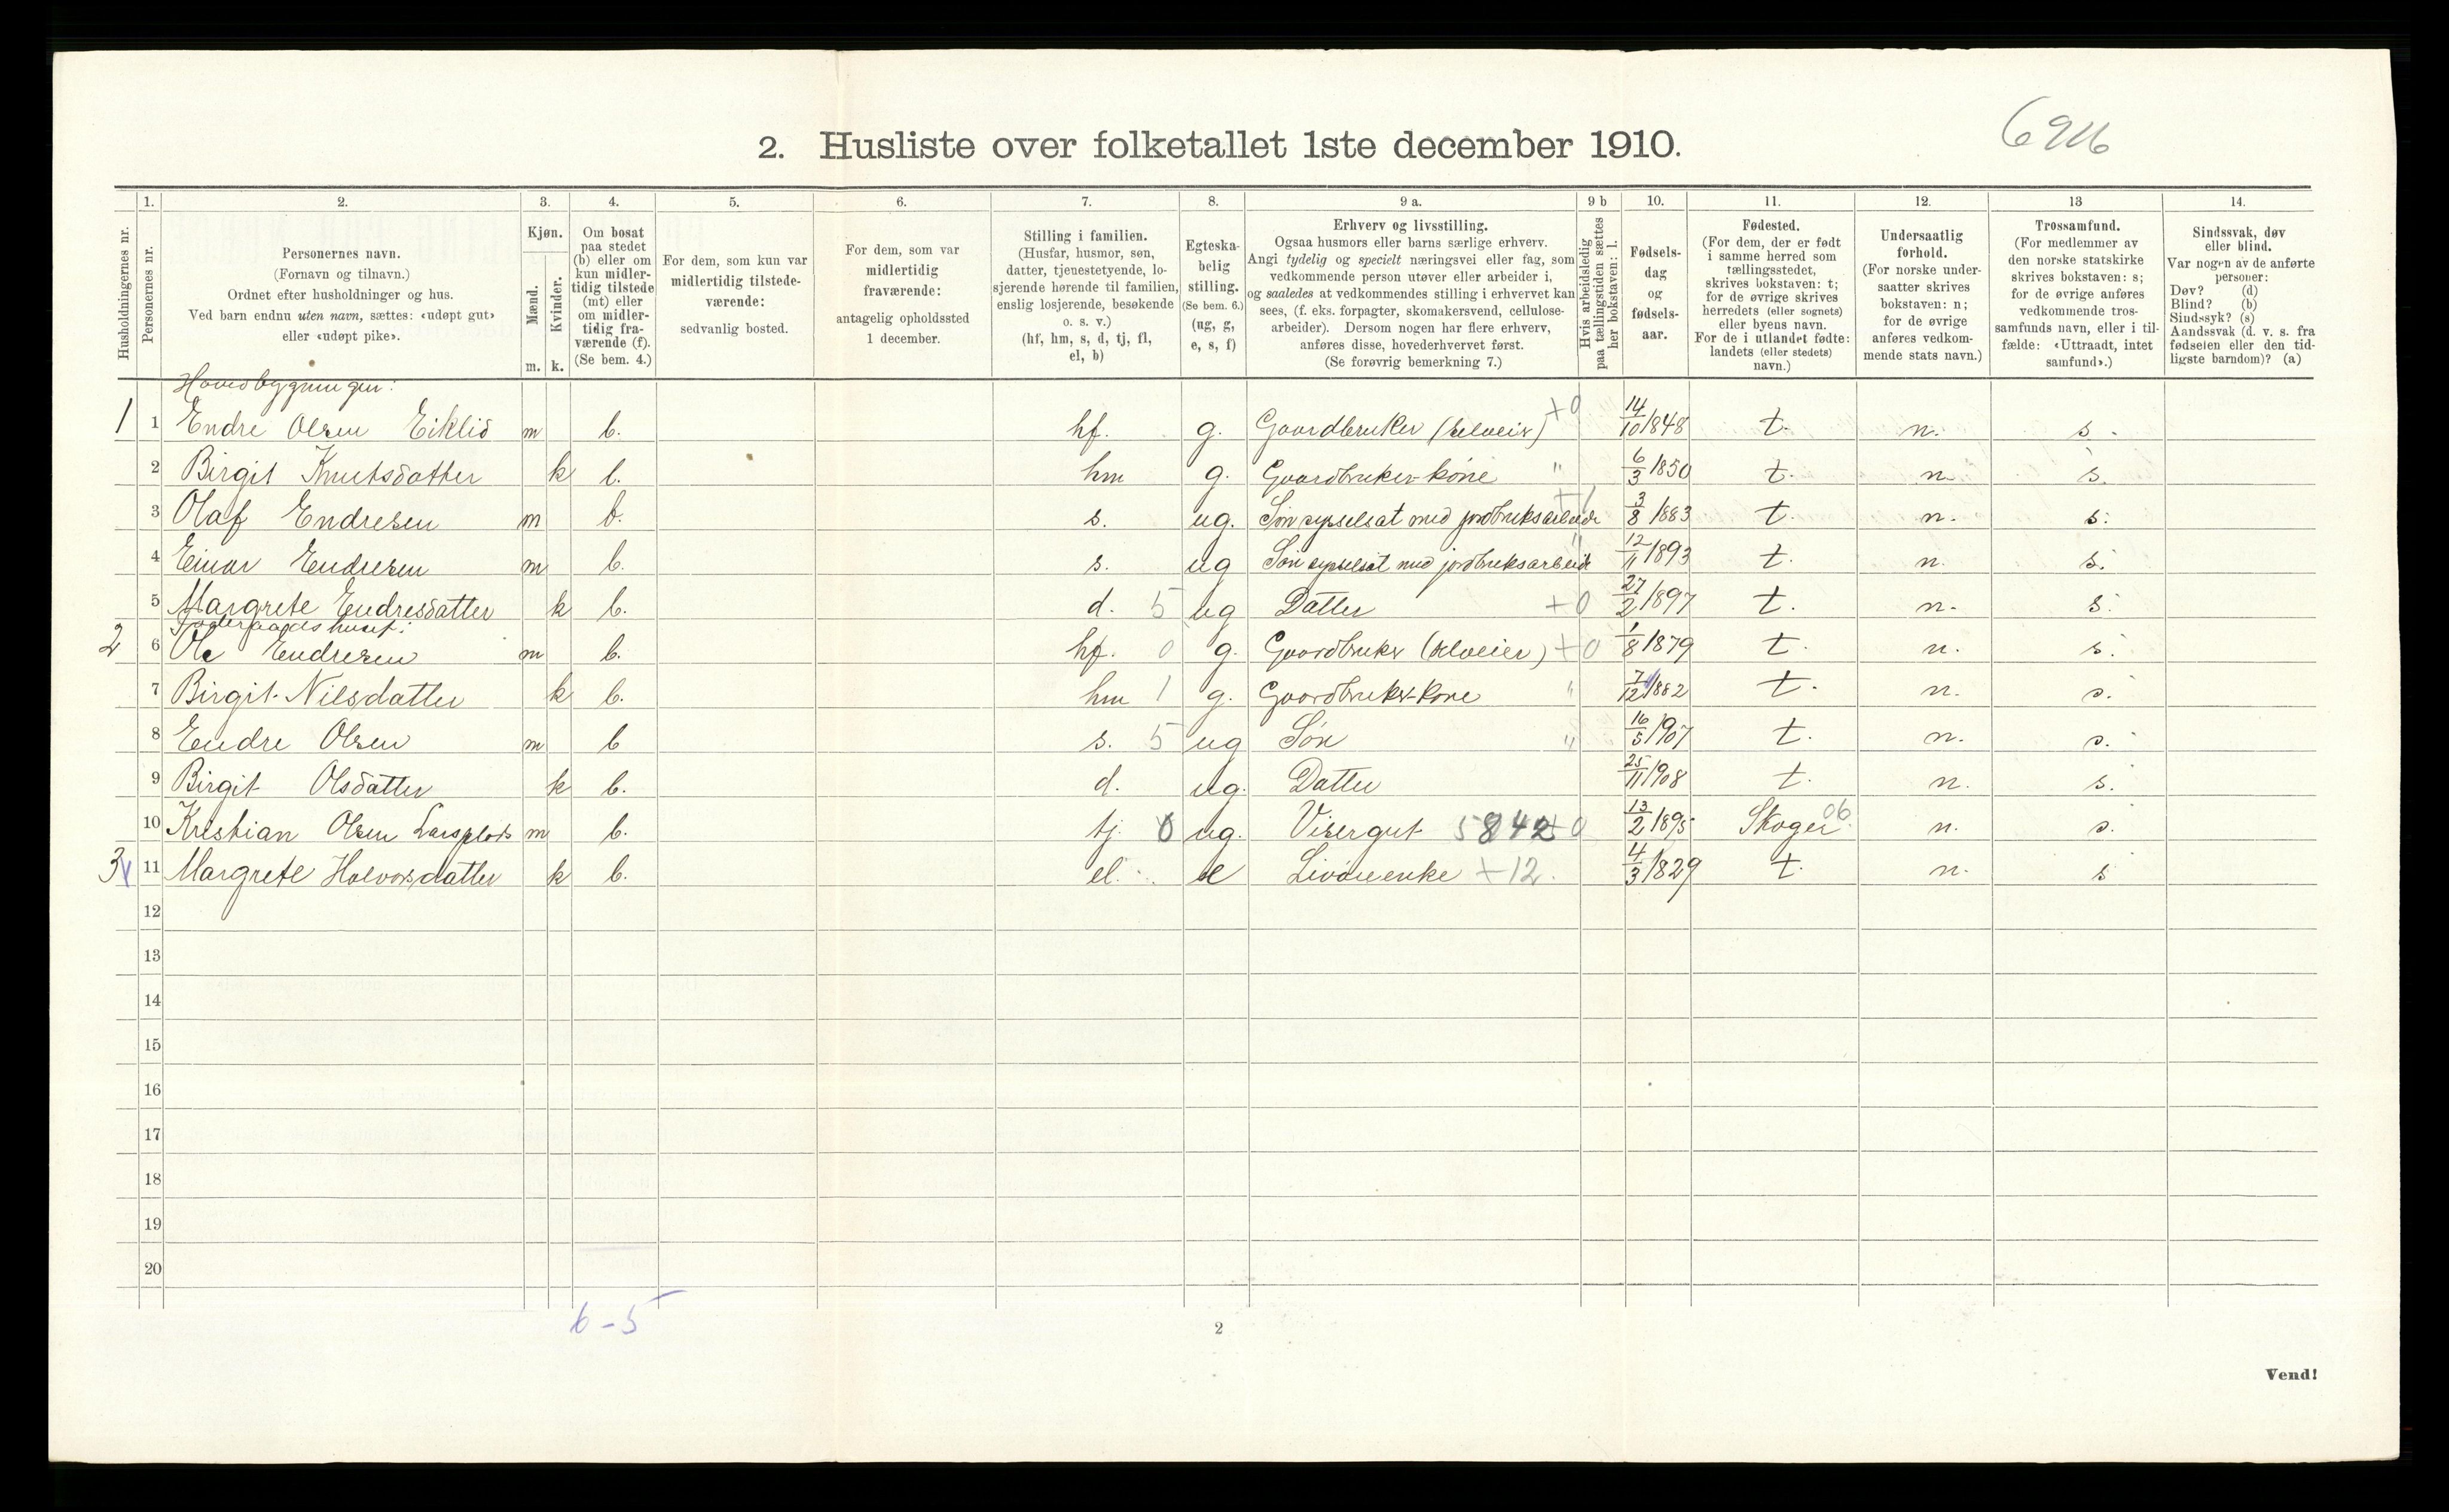 2. Husliste over folketallet 1ste december 1910.
1. 2. 3. 4. 5. 6. 7. 8. 9 a. 9 b 10. 11. 12. 13 14.
Husholdningernes nr.
Personernes nr.
Personernes navn.
(Fornavn og tilnavn.)
Ordnet efter husholdninger og hus.
Ved barn endnu uten navn, sættes: «udøpt gut»
eller «udøpt pike».
Kjøn.
Mænd.
Kvinder.
m. k.
Om bosat
paa stedet
(b) eller om
kun midler-
tidig tilstede
(mt) eller
om midler-
tidig fra-
værende (f).
(Se bem. 4.)
For dem, som kun var
midlertidig tilstede-
værende:
sedvanlig bosted.
For dem, som var
midlertidig
fraværende:
antagelig opholdssted
1 december.
Stilling i familien.
(Husfar, husmor, søn,
datter, tjenestetyende, lo-
sjerende hørende til familien,
enslig losjerende, besøkende
o. s. v.)
(hf, hm, s, d, tj, fl,
el, b)
Egteska-
belig
stilling.
(Se bem. 6.)
(ug, g,
e, s, f)
Erhverv og livsstilling.
Ogsaa husmors eller barns særlige erhverv.
Angi tydelig og specielt næringsvei eller fag, som
vedkommende person utøver eller arbeider i,
og saaledes at vedkommendes stilling i erhvervet kan
sees, (f. eks. forpagter, skomakersvend, cellulose-
arbeider). Dersom nogen har flere erhverv,
anføres disse, hovederhvervet først.
(Se forøvrig bemerkning 7.)
Hvis arbeidsledig
paa tællingstiden sættes
her bokstaven: l.
Fødsels-
dag
og
fødsels-
aar.
Fødested.
(For dem, der er født
i samme herred som
tællingsstedet,
skrives bokstaven: t;
for de øvrige skrives
herredets (eller sognets)
eller byens navn.
For de i utlandet fødte:
landets (eller stedets)
navn.)
Undersaatlig
forhold.
(For norske under-
saatter skrives
bokstaven: n;
for de øvrige
anføres vedkom-
mende stats navn.)
Trossamfund.
(For medlemmer av
den norske statskirke
skrives bokstaven: s;
for de øvrige anføres
vedkommende tros-
samfunds navn, eller i til-
fælde: «Uttraadt, intet
samfund».)
Sindssvak, døv
eller blind.
Var nogen av de anførte
personer:
Døv? (d)
Blind? (b)
Sindssyk? (s)
Aandssvak (d. v. s. fra
fødselen eller den tid-
ligste barndom)? (a)
Hovedbygningen:
1 1 Endre Olsen Eiklid m b. hf. g. Gaardbruker (selveier) +0 14/10 1848 t. n. s.
2 Birgit Knutsdatter k b. hm g. Gaardbruker-kone " 6/3 1850 t. n s.
3 Olaf Endresen m b. s. ug. Søn sysselsat med jordbruksarbeide 3/8 1883 t. n. s.
4 Einar Endresen m b. s. ug Søn sysselsat med jordbruksarbeide " 12/11 1893 t. n. s.
5 Margrete Endresdatter k b. d. 5 ug Datter +0 27/2 1897 t. n. s.
2 6 Ole Endresen m b. hf. 0 g. Gaardbruker (selveier) +0 1/8 1879 t. n. s.
7 Birgit Nilsdatter k b. hm 1 g. Gaardbruker-kone " 7/12 1882 t. n. s.
8 Endre Olsen m b s. 5 ug Søn " 16/5 1907 t. n. s.
9 Birgit Olsdatter k b. d. ug. Datter 25/11 1908 t. n. s.
10 Kristian Olsen m b. tj. 0 ug. Visergut 5842 +0 13/2 1895 Skoger 06. n. s.
3 11 Margrete Halvorsdatter k b. el. e Livørenke +12. 4/3 1829 t. n. s
12
13
14
15
16
17
18
19
20
6-5
2
Vend!